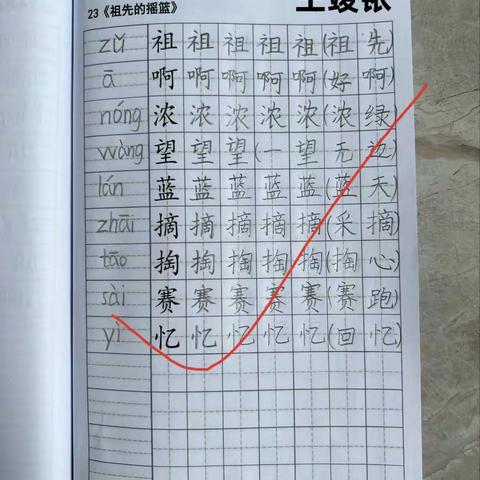 23《祖先的摇篮》
zǔ 祖 祖 祖 祖 祖(祖 先)
ā 啊 啊 啊 啊 啊(好 啊)
nóng 浓 浓 浓 浓 浓(浓 绿)
wàng 望 望 望(一 望 无 边)
lán 蓝 蓝 蓝 蓝 蓝(蓝 天)
zhāi 摘 摘 摘 摘 摘(采 摘)
tāo 掏 掏 掏 掏 掏(掏 心)
sài 赛 赛 赛 赛 赛(赛 跑)
yì 忆 忆 忆 忆 忆(回 忆)